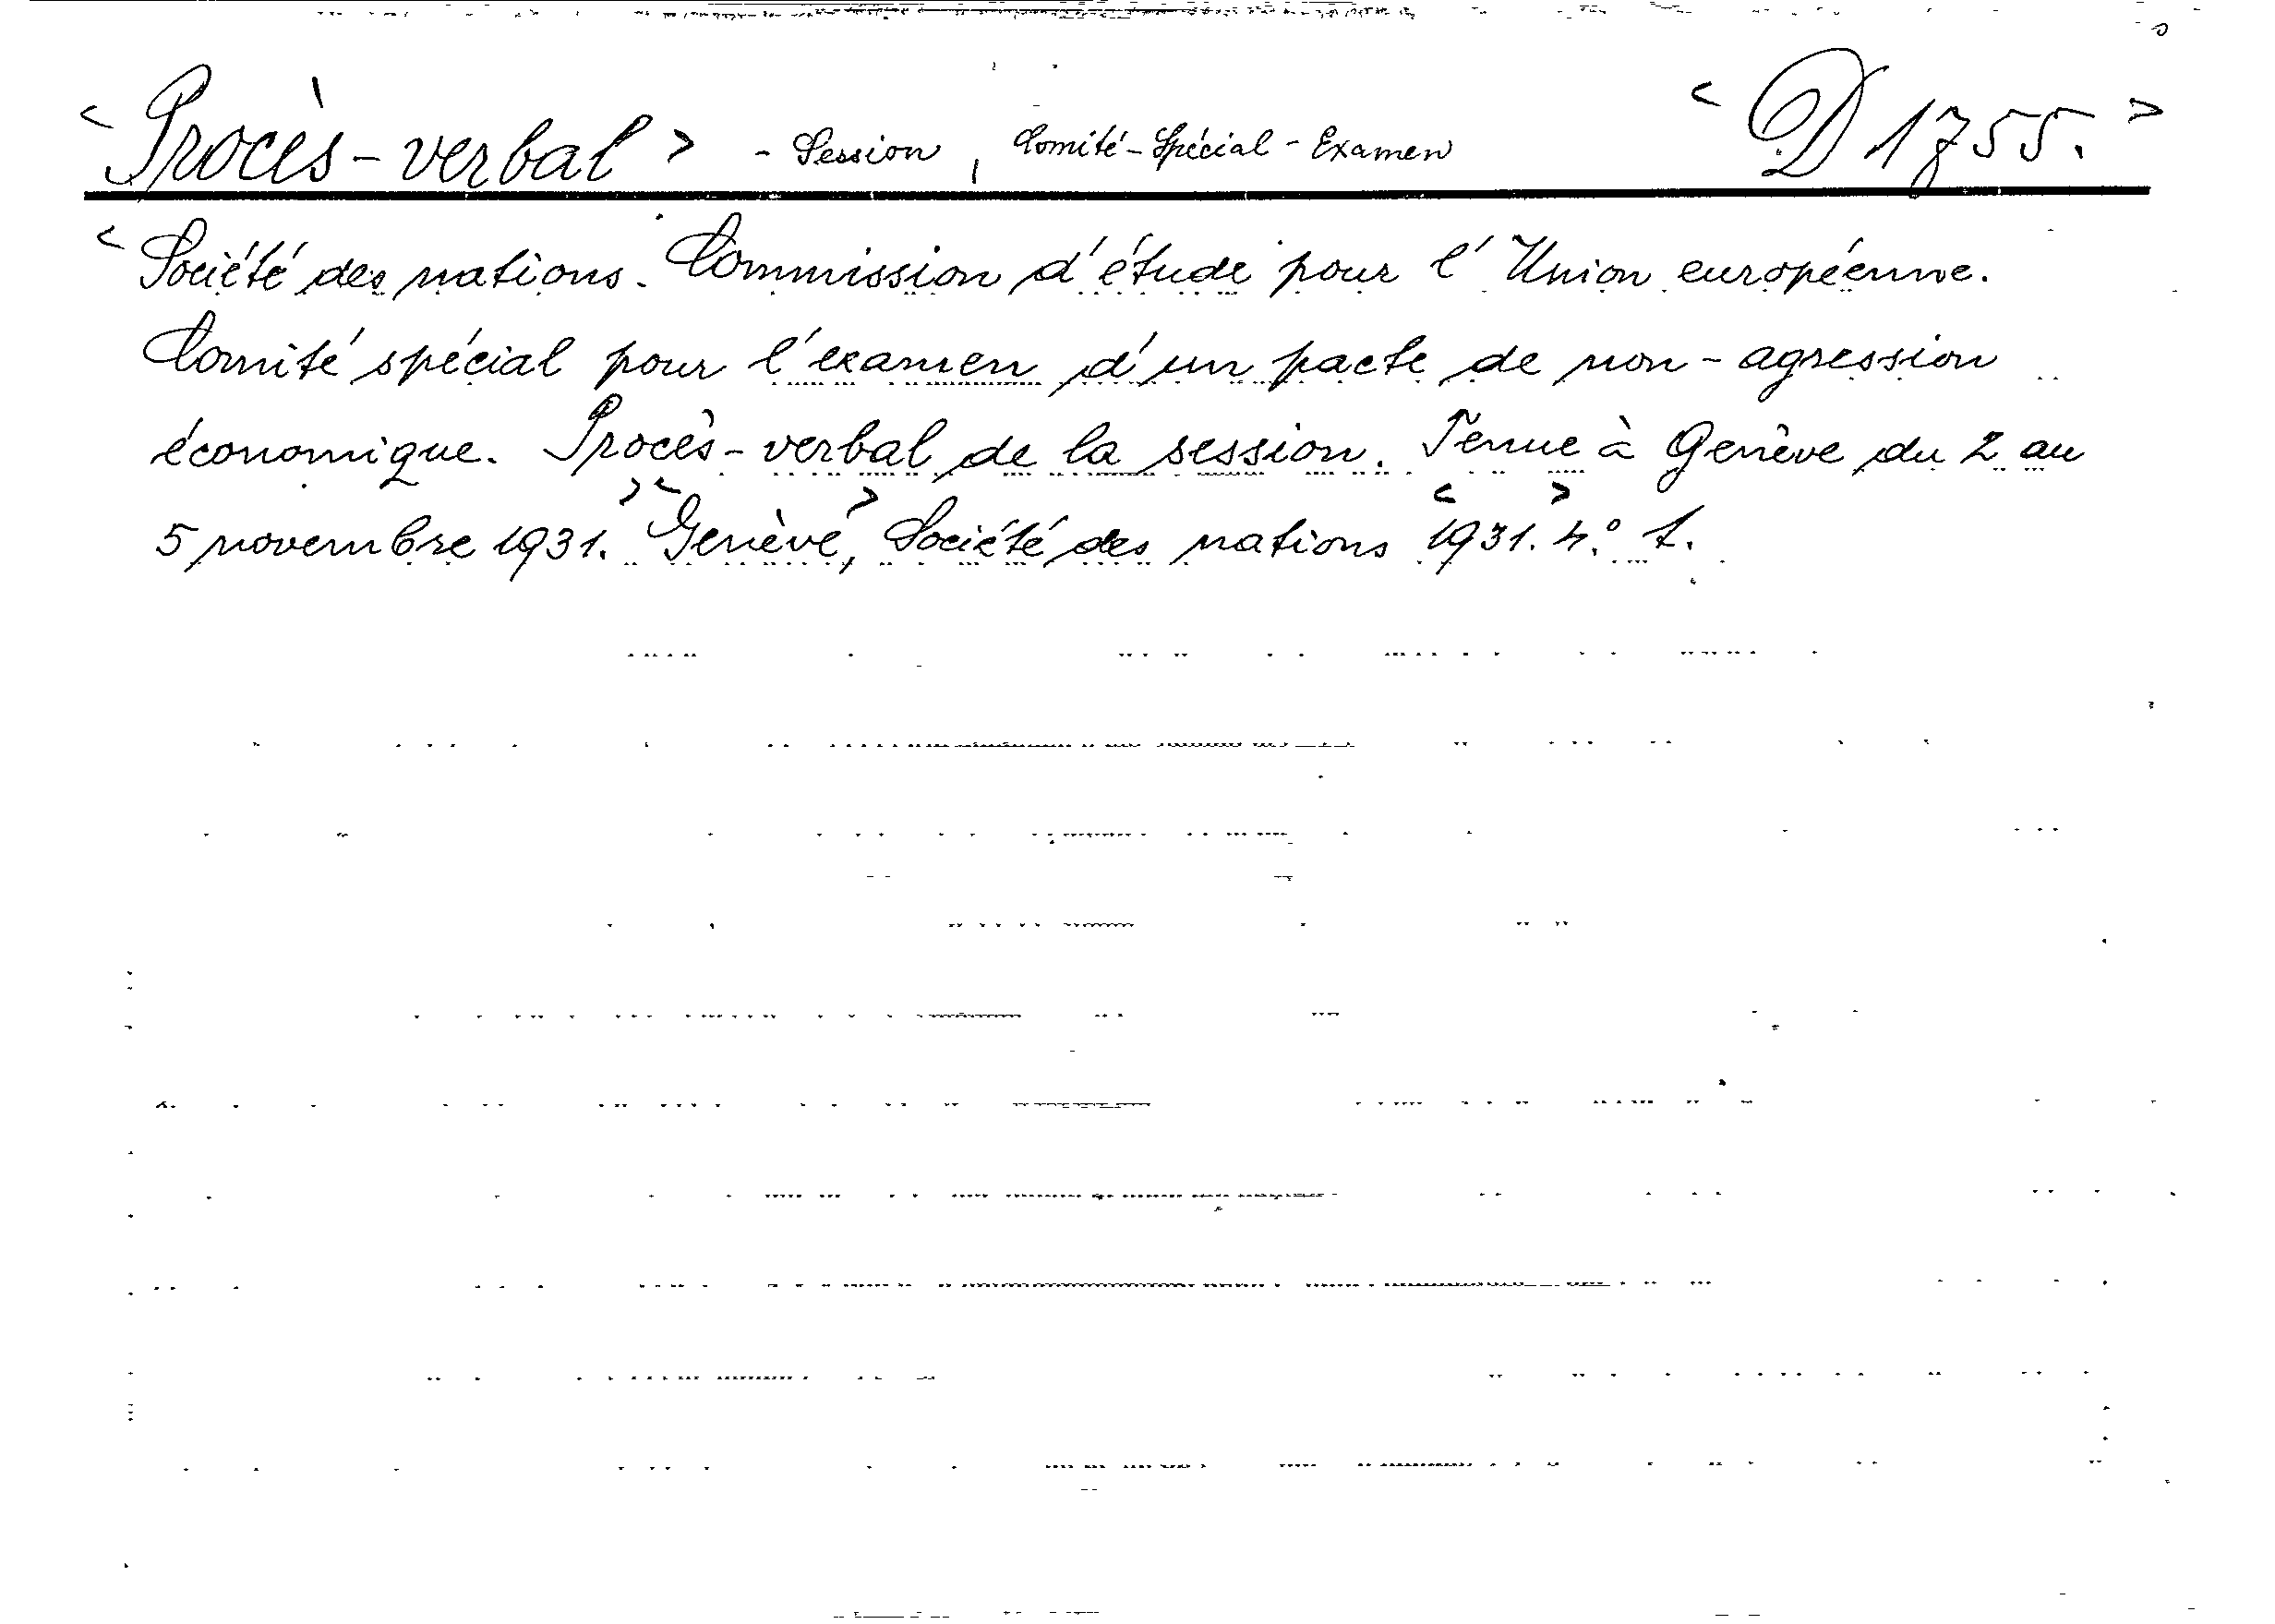 < Procès-verbal > - Session, Comité-Spécial-Examen < D 1755. >
< Société des nations. Commission d'étude pour l'Union européenne.
Comité spécial pour l'examen d'un pacte de non-agression
économique. Procès-verbal de la session. Tenue à Genève du 2 au
5 novembre 1931. > < Genève, > Société des nations < 1931. > 4.° 1.